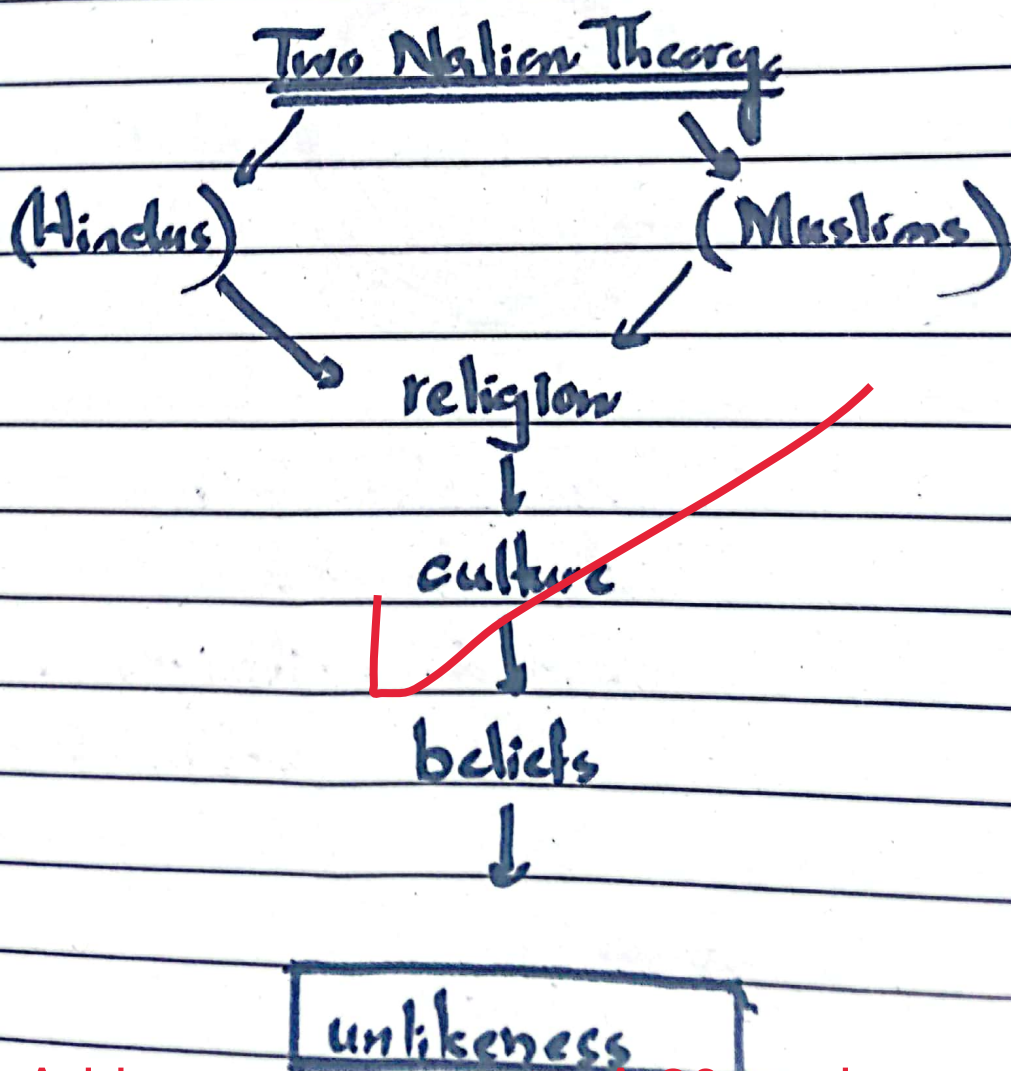 Two Nation Theory
(Hindus) (Muslims)
religion
culture
beliefs
unlikeness